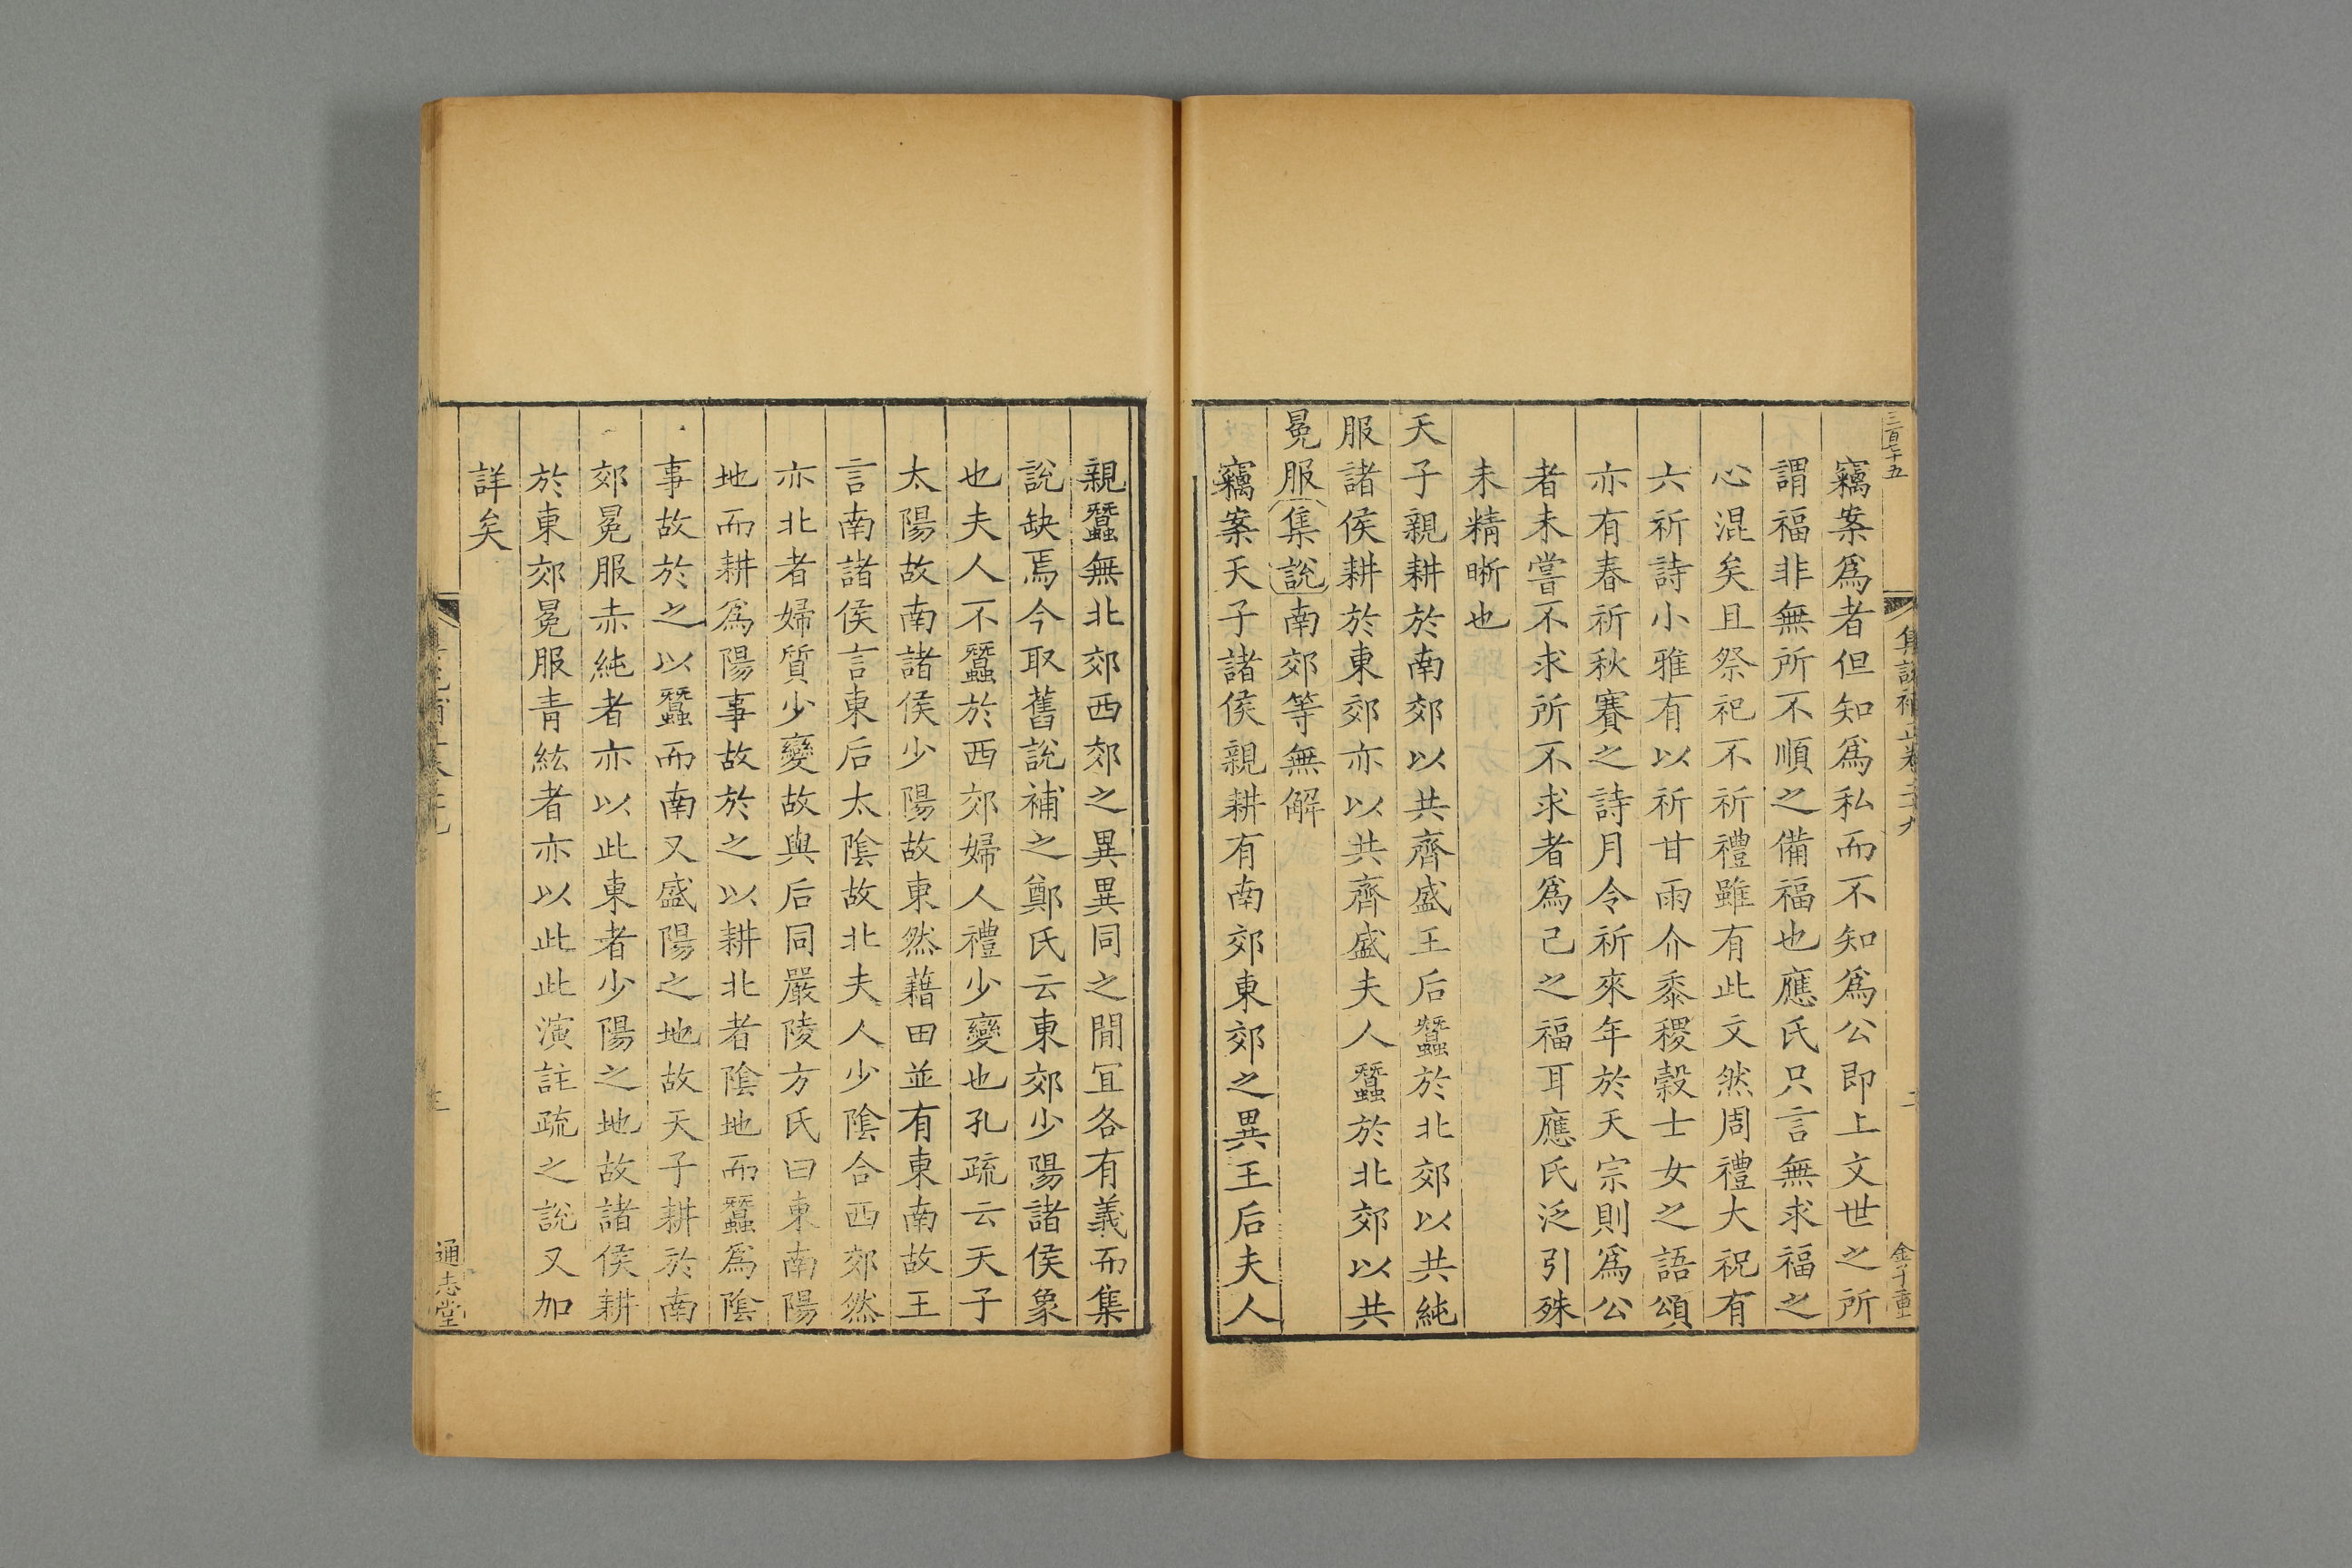 三百七十五
竊案爲者但知爲私而不知爲公即上文世之所
謂福非無所不順之備福也應氏只言無求福之
心混矣且祭祀不祈禮雖有此文然周禮大祝有
六祈詩小雅有以祈甘雨介黍稷穀士女之語頌
亦有春祈秋賽之詩月令祈來年於天宗則爲公
者未嘗不求所不求者爲己之福耳應氏泛引殊
未精晰也
天子親耕於南郊以共齊盛王后蠶於北郊以共純
服諸侯耕於東郊亦以共齊盛夫人蠶於北郊以共
冕服集說南郊等無解
竊案天子諸侯親耕有南郊東郊之異王后夫人
親蠶無北郊西郊之異異同之間冝各有義而集
說缺焉今取舊說補之鄭氏云東郊少陽諸侯象
也夫人不蠶於西郊婦人禮少變也孔疏云天子
太陽故南諸侯少陽故東然藉田並有東南故王
言南諸侯言東后太陰故北夫人少陰合西郊然
亦北者婦質少變故與后同嚴陵方氏曰東南陽
地而耕爲陽事故於之以耕北者陰地而蠶爲陰
事故於之以蠶而南又盛陽之地故天子耕於南
郊冕服赤純者亦以此東者少陽之地故諸侯耕
於東郊冕服青紘者亦以此此演註疏之說又加
詳矣
通志堂